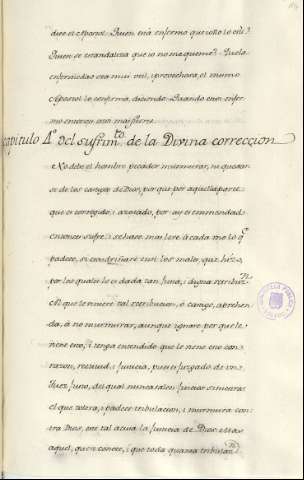 dice el Apostol. Quien está enfermo que io no lo esté?
Quien se escandaliza que io no me queme? Que la
enfermedad sea mui util, i provechosa, el mismo
Apostol lo confirma, diciendo: Quando estoi enfer-
mo entonces soi mas fuerte.
Capitulo 4º Del sufrim.to de la Divina correccion
No debe el hombre pecador murmurar, ni quejar-
se de los castigos de Dios, por que por aquella parte
que es corregido, i azotado, por ay es enmendado
entonces sufre, i se hace mas leve á cada uno lo q.e
padece, si escudriñare sus los males, que hizo,
por los quales le es dada tan justa, i digna retribuz.on
El que teme tal retribucion, ó castigo, aprehen-
da, á no murmurar, aunque ignore por que le
viene esto, i tenga entendido que le viene con
razon, rectitud, i justicia, pues es juzgado de un
Juez justo, del qual nunca salen juicios sin causa
el que tolera, i padece tribulacion, i murmura con-
tra Dios, este tal acusa la justicia de Dios. Mas
aquel, que conoce, i que toda quanta tribulaz.on